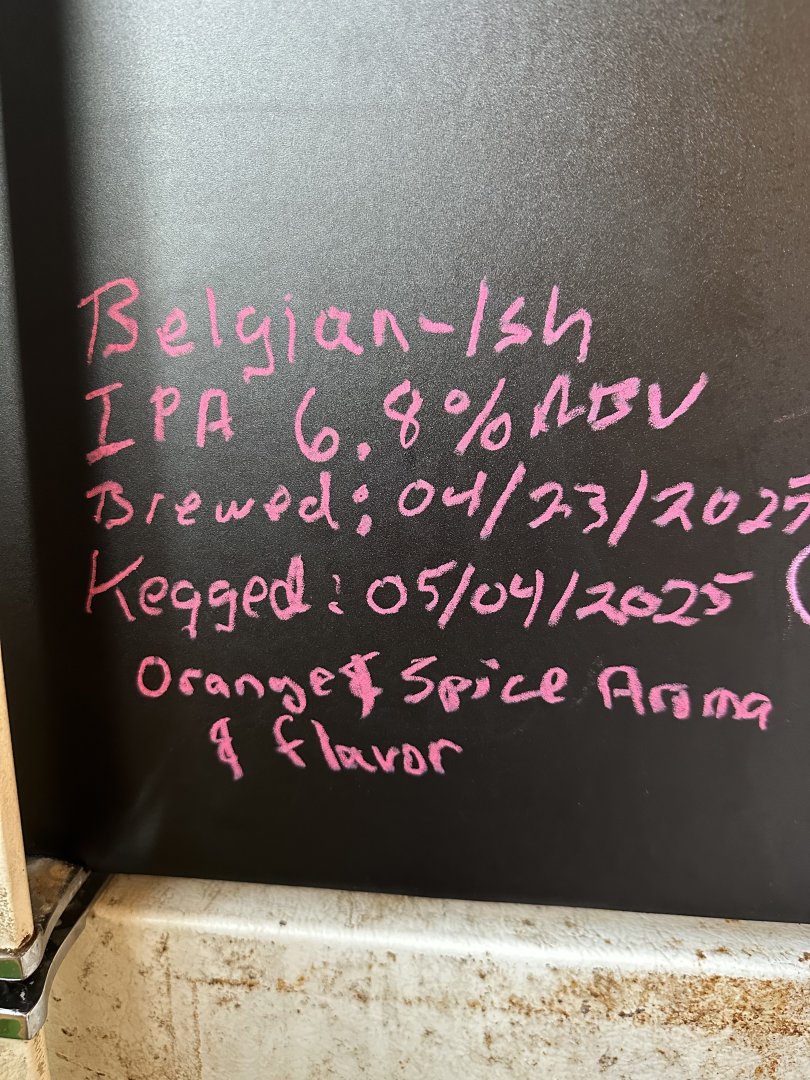 Belgian-Ish
IPA 6.8% ABV
Brewed: 04/23/2025
Kegged: 05/04/2025
Orange & Spice Aroma
& flavor